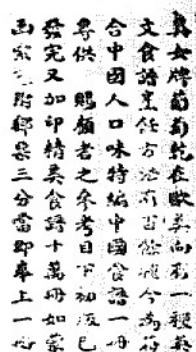 美女牌葡萄乾在歐美向有一種
文食譜烹飪方法今為符
合中國人口味特編中國食譜一冊
專供 賜顧者之參考目下初版已
發完又加印精美食譜十萬冊如蒙
函索附郵票三分當即奉上一冊